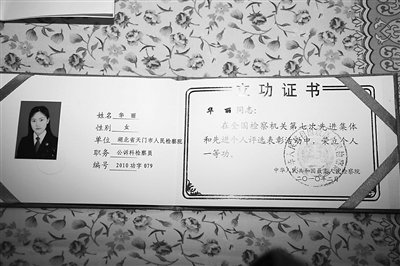 姓名 华丽
性别 女
单位 湖北省天门市人民检察院
职务 公诉科检察员
编号 2010功字079
立功证书
华丽同志:
在全国检察机关第七次先进集体
和先进个人评选表彰活动中,荣立个人
一等功。
中华人民共和国最高人民检察院
二〇一〇年二月